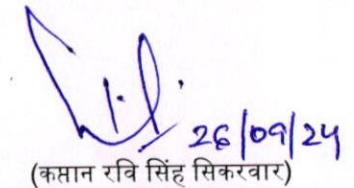 26/09/24
(कप्तान रवि सिंह सिकरवार)